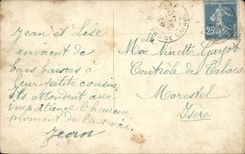 Jean et Lise
envoient de
bons baisers à
leur petite cousine
ils attendent avec
impatience l'heureux
moment de la revoir.
Jean
Mlle Ninette Guyot
Contrôle des Tabacs
Morestel
Isère
25